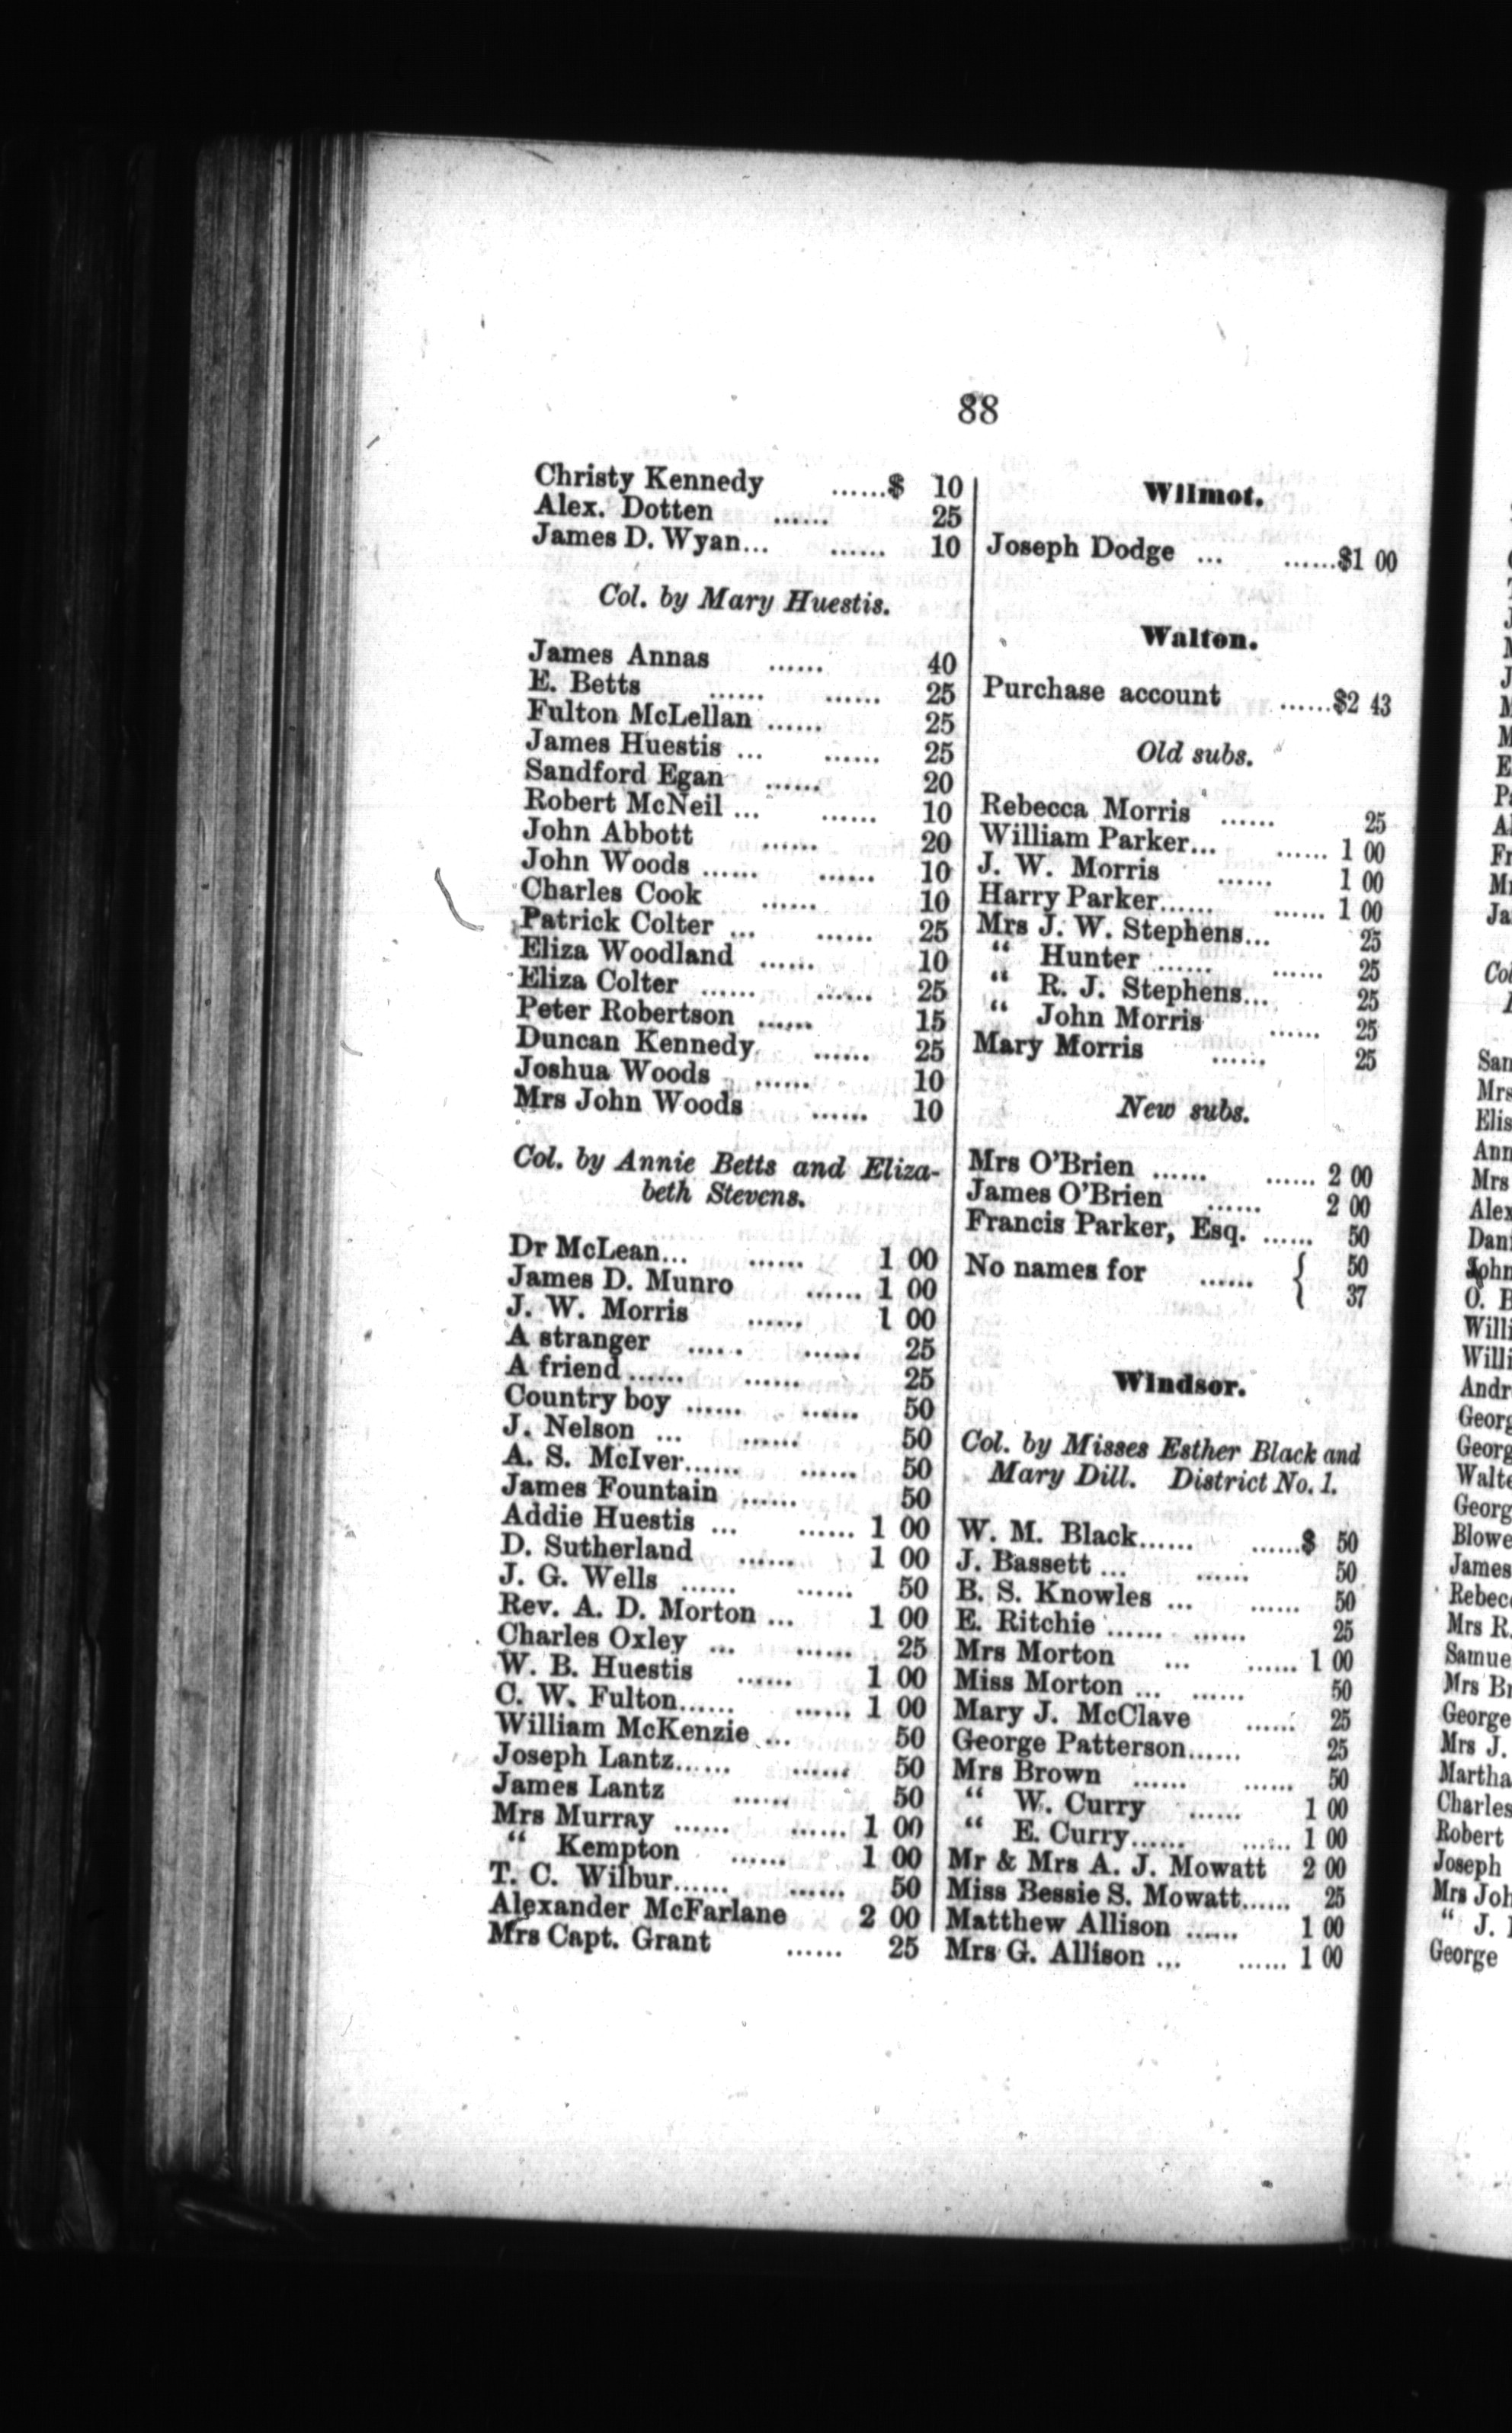 88
Christy Kennedy ......$ 10
Alex. Dotten ...... 25
James D. Wyan... ...... 10
Col. by Mary Huestis.
James Annas ...... 40
E. Betts ...... ...... 25
Fulton McLellan ...... 25
James Huestis ... ...... 25
Sandford Egan ...... 20
Robert McNeil ... ...... 10
John Abbott ...... 20
John Woods ...... ...... 10
Charles Cook ...... 10
Patrick Colter ... ...... 25
Eliza Woodland ...... 10
Eliza Colter ...... ...... 25
Peter Robertson ...... 15
Duncan Kennedy ...... 25
Joshua Woods ...... 10
Mrs John Woods ...... 10
Col. by Annie Betts and Eliza-
beth Stevens.
Dr McLean... ...... 1 00
James D. Munro ...... 1 00
J. W. Morris ...... 1 00
A stranger ...... ...... 25
A friend ...... ...... 25
Country boy ...... ...... 50
J. Nelson ... ...... 50
A. S. McIver...... ...... 50
James Fountain ...... 50
Addie Huestis ... ...... 1 00
D. Sutherland ...... 1 00
J. G. Wells ...... ...... 50
Rev. A. D. Morton ... 1 00
Charles Oxley ... ...... 25
W. B. Huestis ...... 1 00
C. W. Fulton...... ...... 1 00
William McKenzie ... 50
Joseph Lantz...... ...... 50
James Lantz ...... 50
Mrs Murray ...... ...... 1 00
" Kempton ...... 1 00
T. C. Wilbur...... ...... 50
Alexander McFarlane 2 00
Mrs Capt. Grant ...... 25
Wilmot.
Joseph Dodge ... ......$1 00
Walton.
Purchase account ......$2 43
Old subs.
Rebecca Morris ...... 25
William Parker... ...... 1 00
J. W. Morris ...... 1 00
Harry Parker...... ...... 1 00
Mrs J. W. Stephens... 25
" Hunter ...... ...... 25
" R. J. Stephens... 25
" John Morris ...... 25
Mary Morris ...... 25
New subs.
Mrs O'Brien ...... ...... 2 00
James O'Brien ...... 2 00
Francis Parker, Esq. ...... 50
No names for ...... { 50
37
Windsor.
Col. by Misses Esther Black and
Mary Dill. District No. 1.
W. M. Black...... ......$ 50
J. Bassett ... ...... 50
B. S. Knowles ... ...... 50
E. Ritchie ...... ...... 25
Mrs Morton ... ...... 1 00
Miss Morton ... ...... 50
Mary J. McClave ...... 25
George Patterson...... 25
Mrs Brown ...... ...... 50
" W. Curry ...... 1 00
" E. Curry...... ...... 1 00
Mr & Mrs A. J. Mowatt 2 00
Miss Bessie S. Mowatt...... 25
Matthew Allison ...... 1 00
Mrs G. Allison ... ...... 1 00